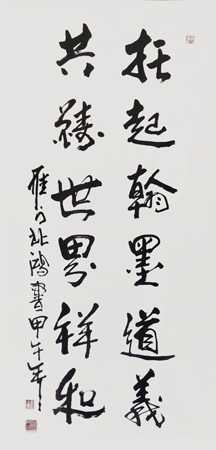 托起翰墨道義
共鑄世界祥和
雁门北鸿書甲午年